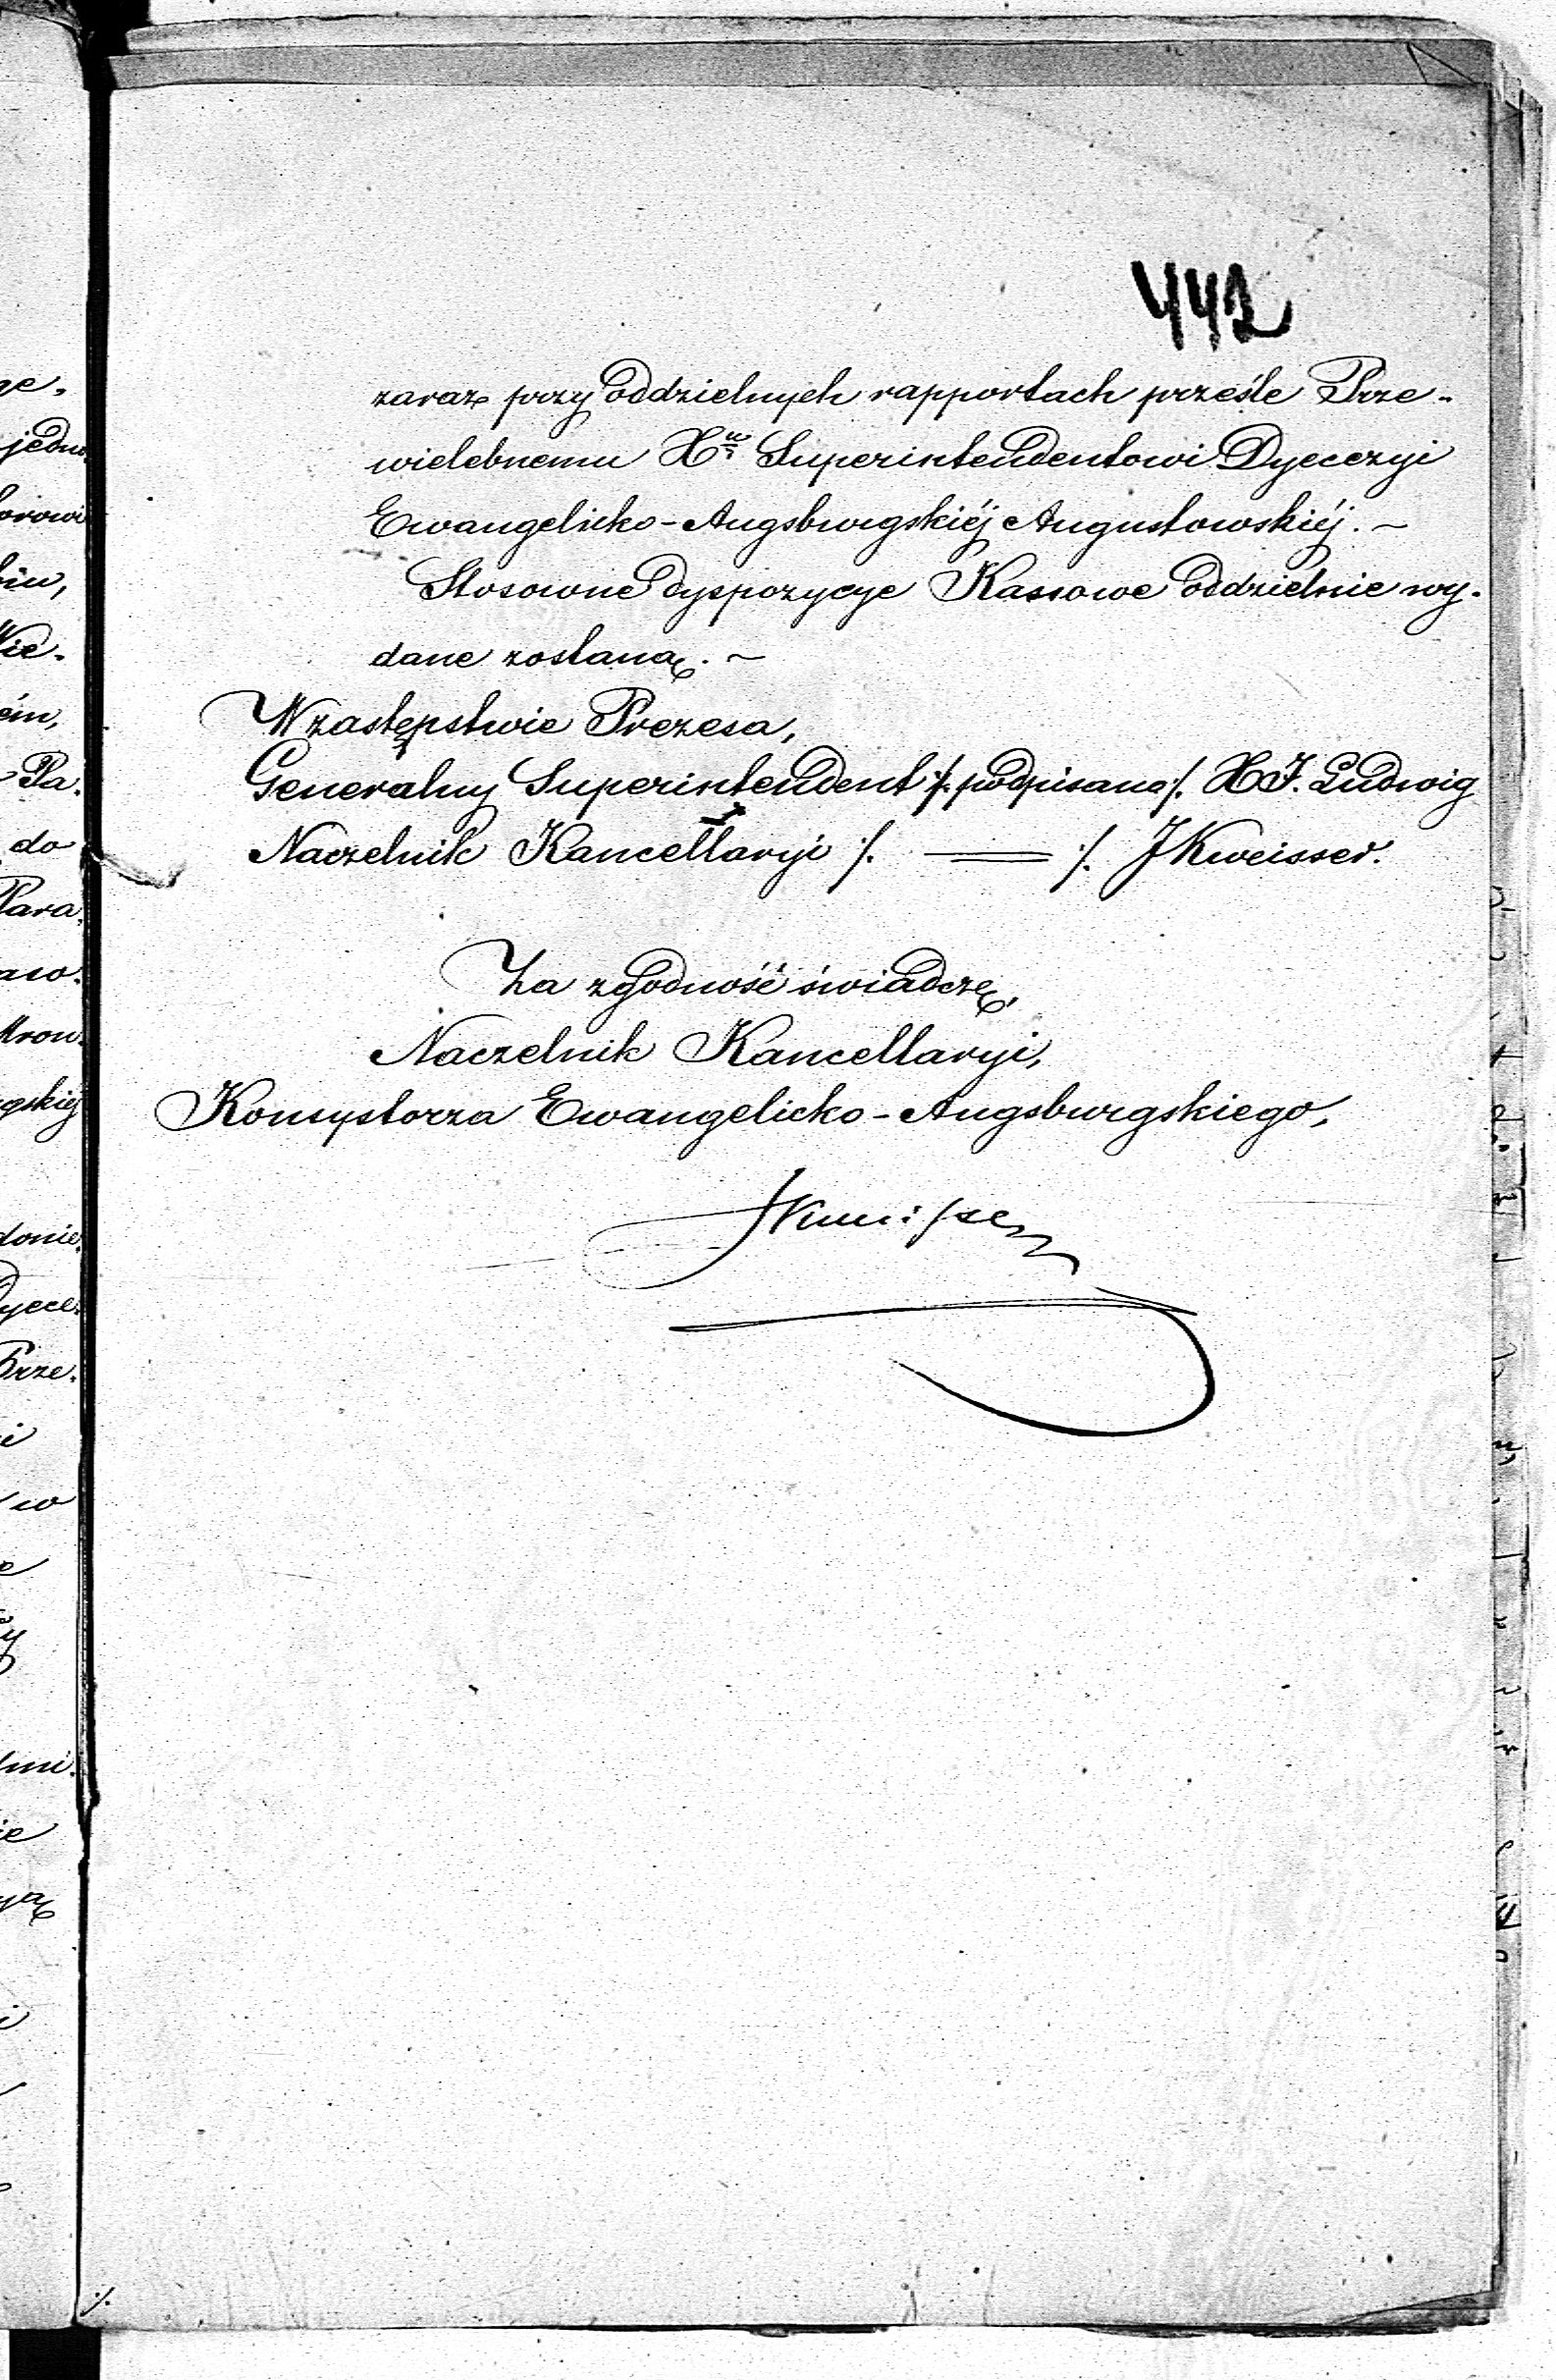 442
zaraz przy oddzielnych rapportach prześle Prze-
wielebnemu Xu Superintendentowi Dyecezyi
Ewangelicko-Augsburgskiéj Augustowskiéj. ~
Stosowne dyspozycye Kassowe oddzielnie wy-
dane zostaną. ~
W zastępstwie Prezesa,
Generalny Superintendent /. podpisano /. X J. Ludwig
Naczelnik Kancellaryi /. = /. J Kweisser.
Za zgodność świadczę,
Naczelnik Kancellaryi,
Konsystorza Ewangelicko-Augsburgskiego,